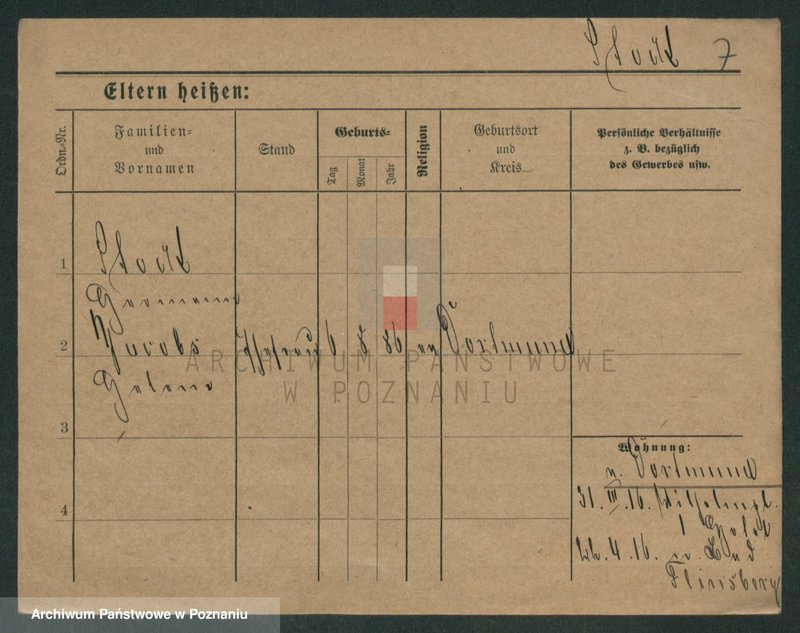 Stock 7
Eltern heißen:
Ordn.-Nr.
Familien- und Vornamen
Stand
Geburts-
Tag
Monat
Jahr
Religion
Geburtsort und Kreis
Persönliche Verhältnisse
z. B. bezüglich
des Gewerbes usw.
1 Stock
Hermann
2 Jacobs Ehefrau 6 8 86 ev Dortmund
Helene
3
4
Wohnung:
v. Dortmund
31. III. 16.
4. 16. n. Bad
Flinsberg
ARCHIWUM PAŃSTWOWE
W POZNANIU
Archiwum Państwowe w Poznaniu